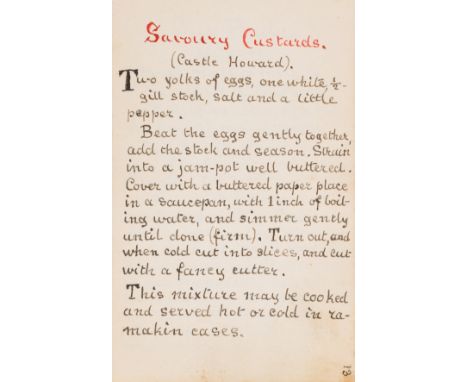 Savoury Custards.
(Castle Howard).
Two yolks of eggs, one white, ½-
gill stock, salt and a little
pepper.
Beat the eggs gently together,
add the stock and season. Strain
into a jam-pot well buttered.
Cover with a buttered paper place
in a saucepan, with 1 inch of boil-
ing water, and simmer gently
until done (firm). Turn out, and
when cold cut into slices, and cut
with a fancy cutter.
This mixture may be cooked
and served hot or cold in ra-
makin cases.
13